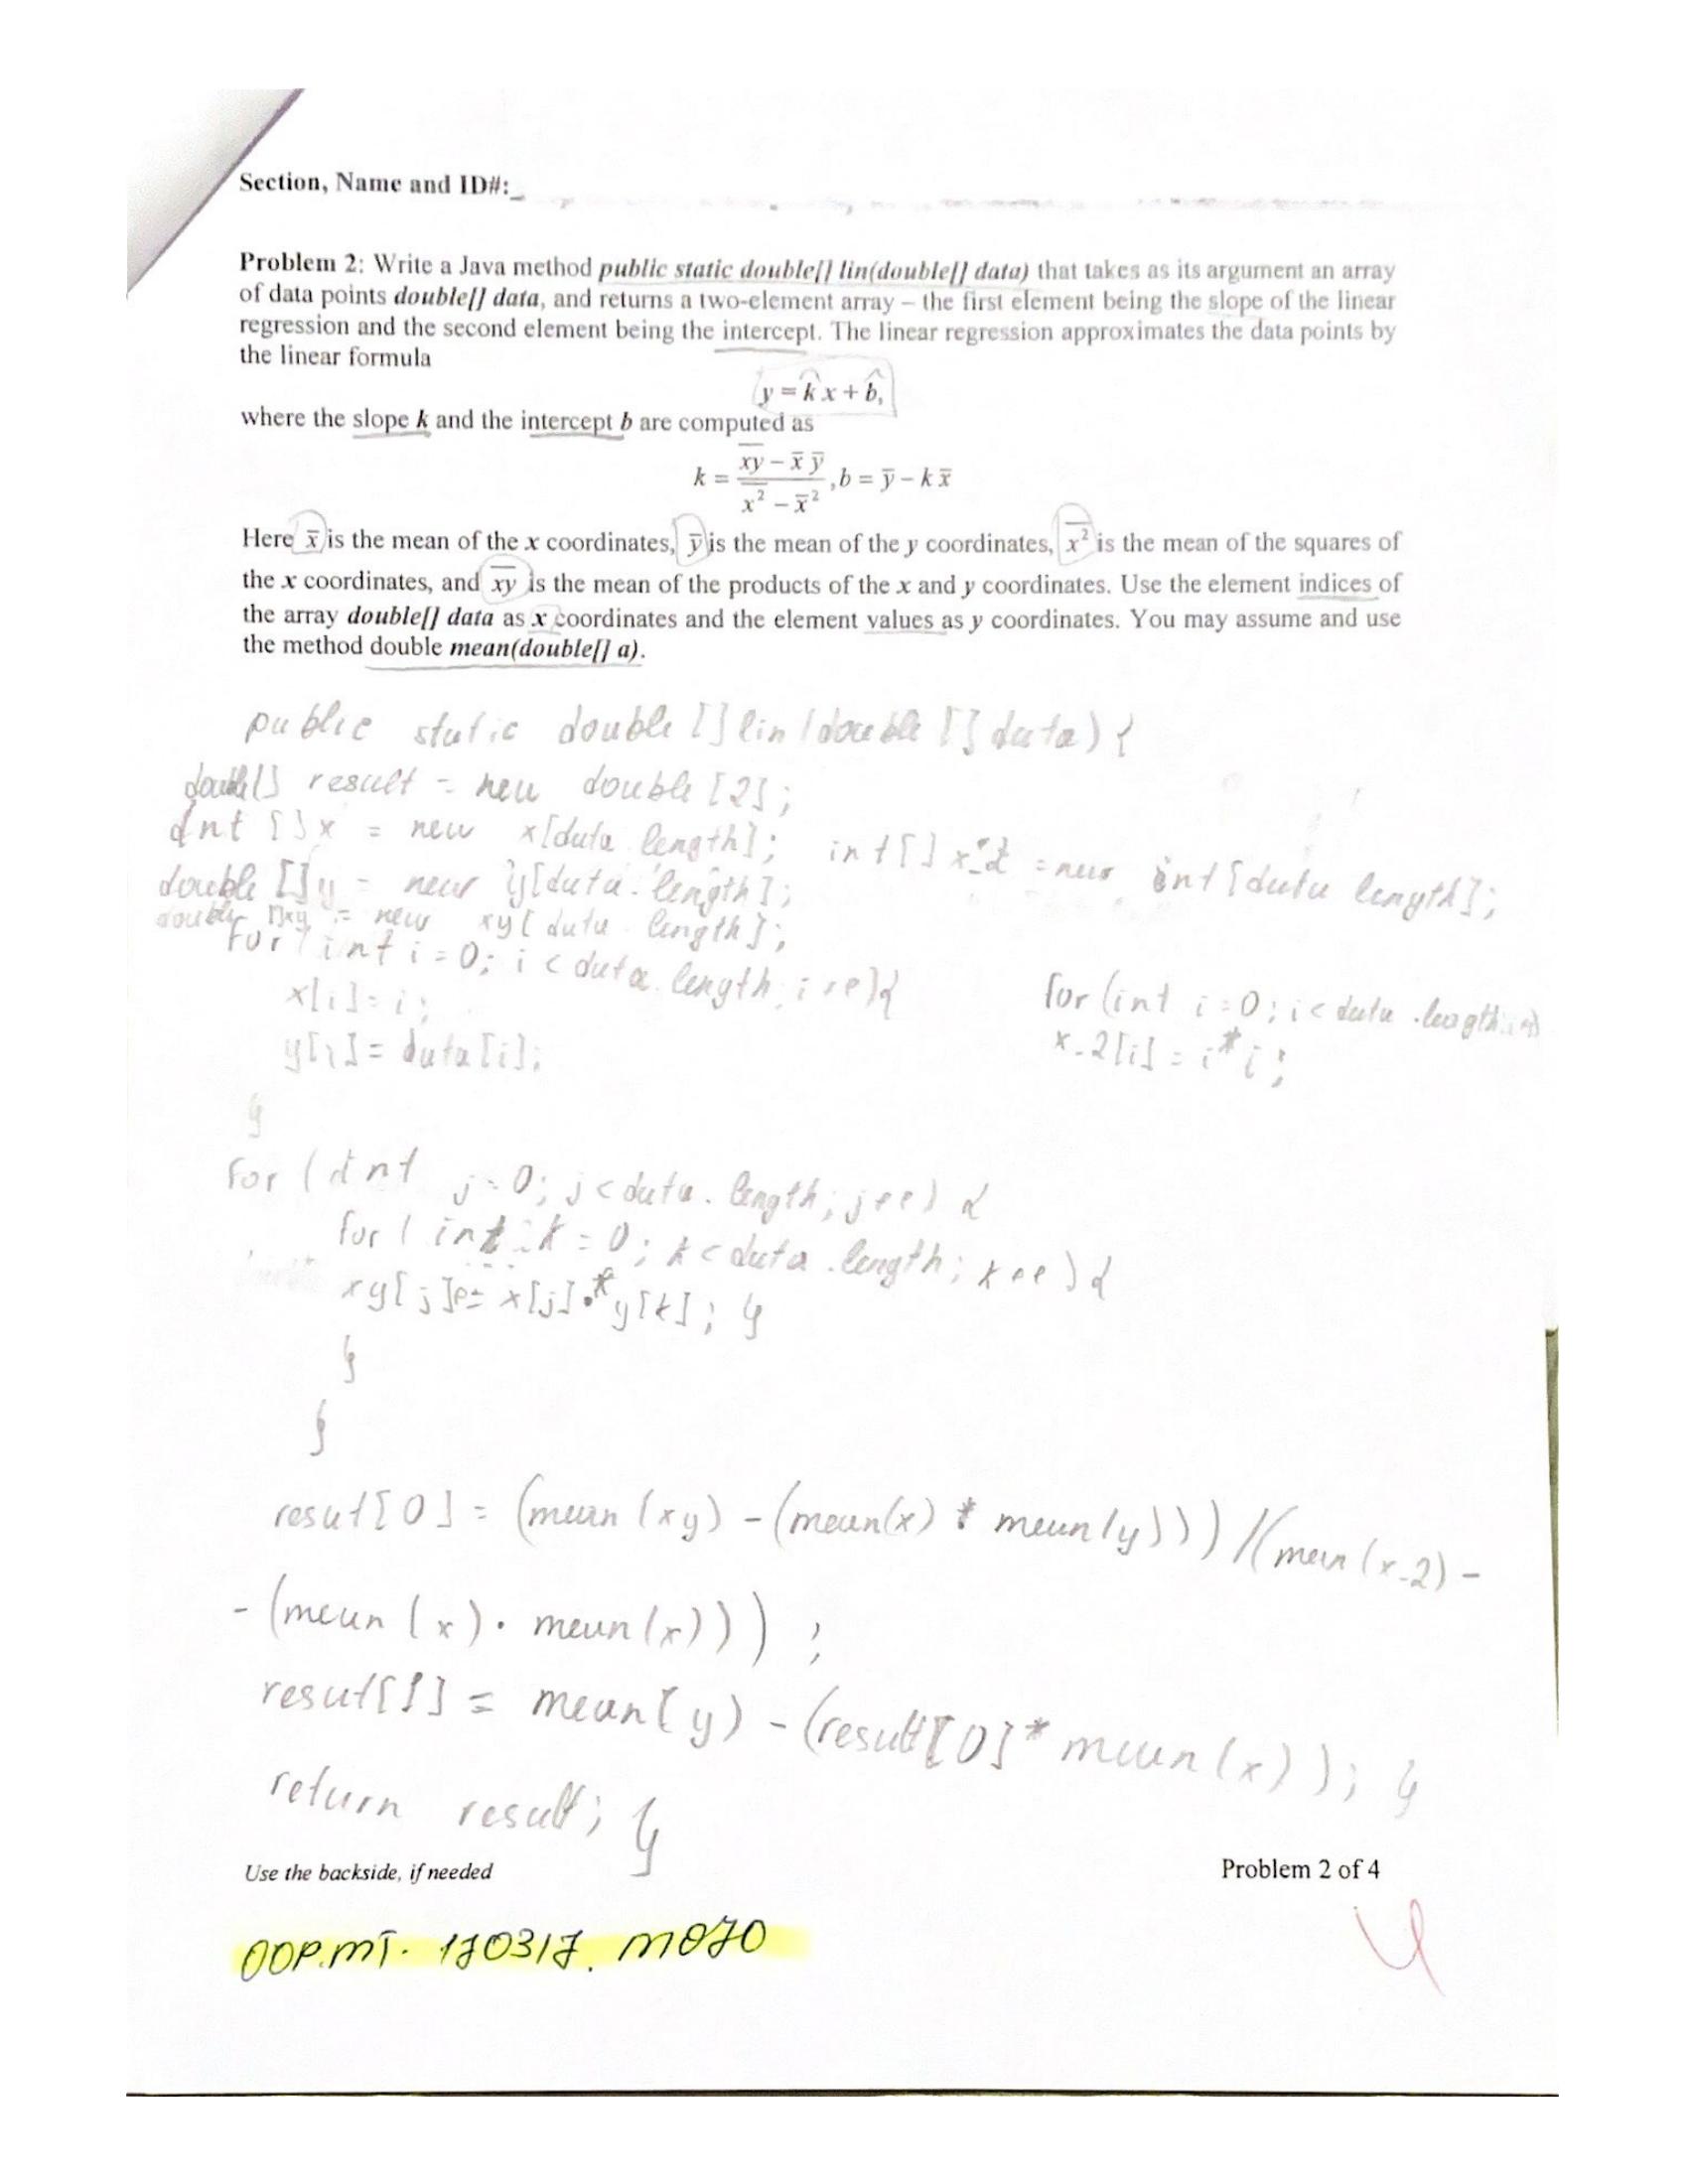 Section, Name and ID#:_
Problem 2: Write a Java method public static double[] lin(double[] data) that takes as its argument an array
of data points double[] data, and returns a two-element array – the first element being the slope of the linear
regression and the second element being the intercept. The linear regression approximates the data points by
the linear formula
y = k x + b,
where the slope k and the intercept b are computed as
k = (x̅y̅ - x̄ ȳ) / (x̅²̅ - x̄²) , b = ȳ - k x̄
Here x̄ is the mean of the x coordinates, ȳ is the mean of the y coordinates, x̅²̅ is the mean of the squares of
the x coordinates, and x̅y̅ is the mean of the products of the x and y coordinates. Use the element indices of
the array double[] data as x coordinates and the element values as y coordinates. You may assume and use
the method double mean(double[] a).
public static double [] lin (double [] data) {
double[] result = new double [2];
int []x = new x[data.length]; int[] x_2 = new int [data length];
double []y = new y[data.length];
double []xy = new xy[data.length];
for (int i = 0; i < data.length; i++){
x[i] = i;
y[i] = data[i];
}
for (int i = 0; i < data.length; i++)
x_2[i] = i * i;
for (int j = 0; j < data.length; j++) {
for (int k = 0; k < data.length; k++) {
xy[j]+= x[j] * y[k]; }
}
}
resut[0] = (mean (xy) - (mean(x) * mean(y))) / (mean (x_2) -
- (mean (x) . mean(x)));
resut[1] = mean[y) - (result[0] * mean(x)); }
return result; }
Use the backside, if needed
Problem 2 of 4
OOP.MT. 170317. M070
4